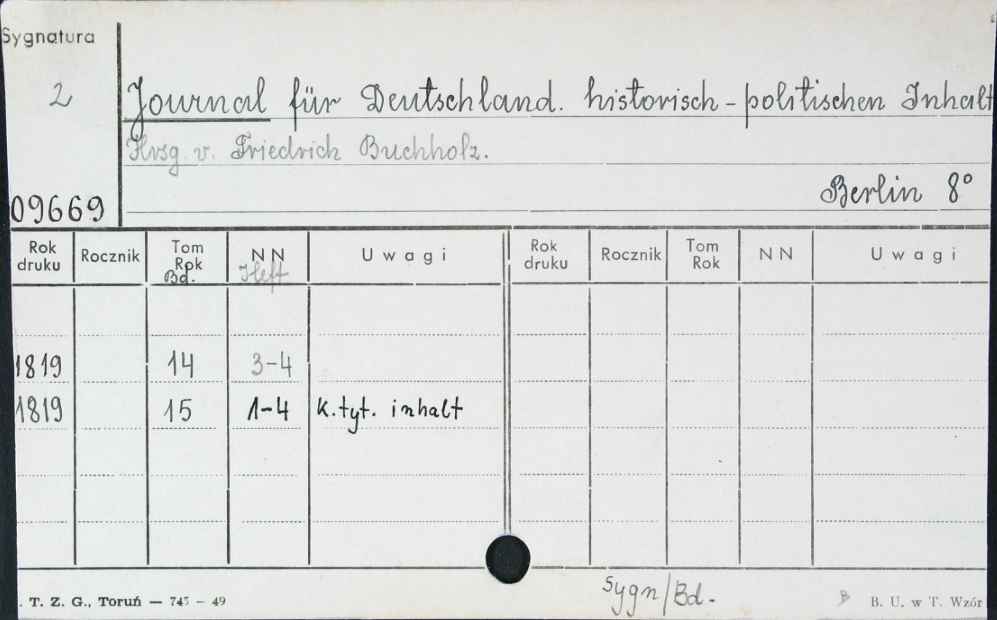 Sygnatura
2
Journal für Deutschland. historisch-politischen Inhalt
Hrsg. v. Friedrich Buchholz.
Berlin 8°
09669
Rok druku Rocznik Tom Rok Bd. NN Heft Uwagi Rok druku Rocznik Tom Rok NN Uwagi
1819 14 3-4
1819 15 1-4 k.tyt. inhalt
Sygn/Bd.
. T. Z. G., Toruń — 745 – 49 B B. U. w T. Wzór